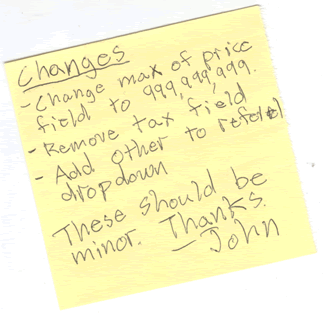 Changes
- Change max of price
field to 999,999,999.
- Remove tax field
- Add other to referel
dropdown
These should be
minor. Thanks.
- John